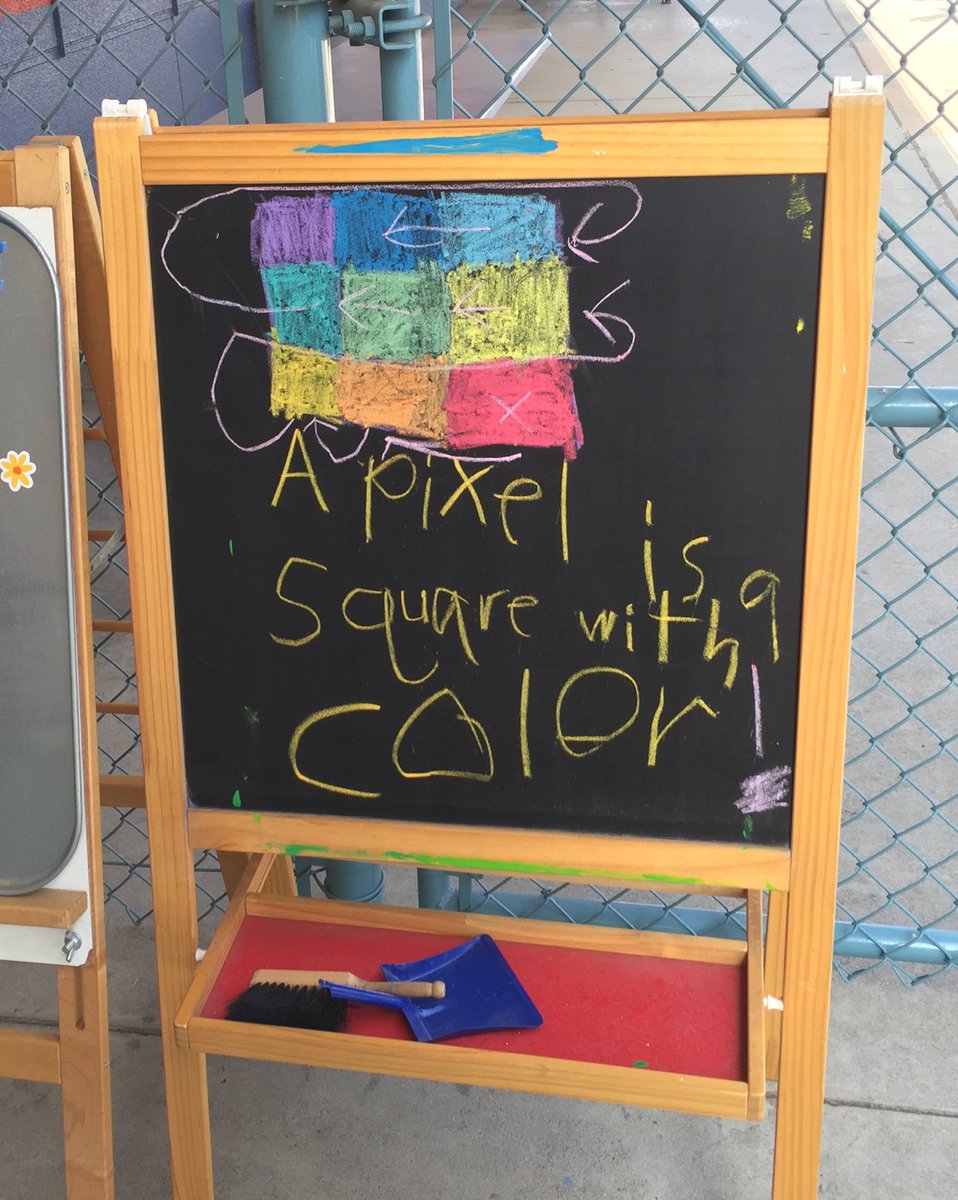 A pixel is a
Square with
COlOr!